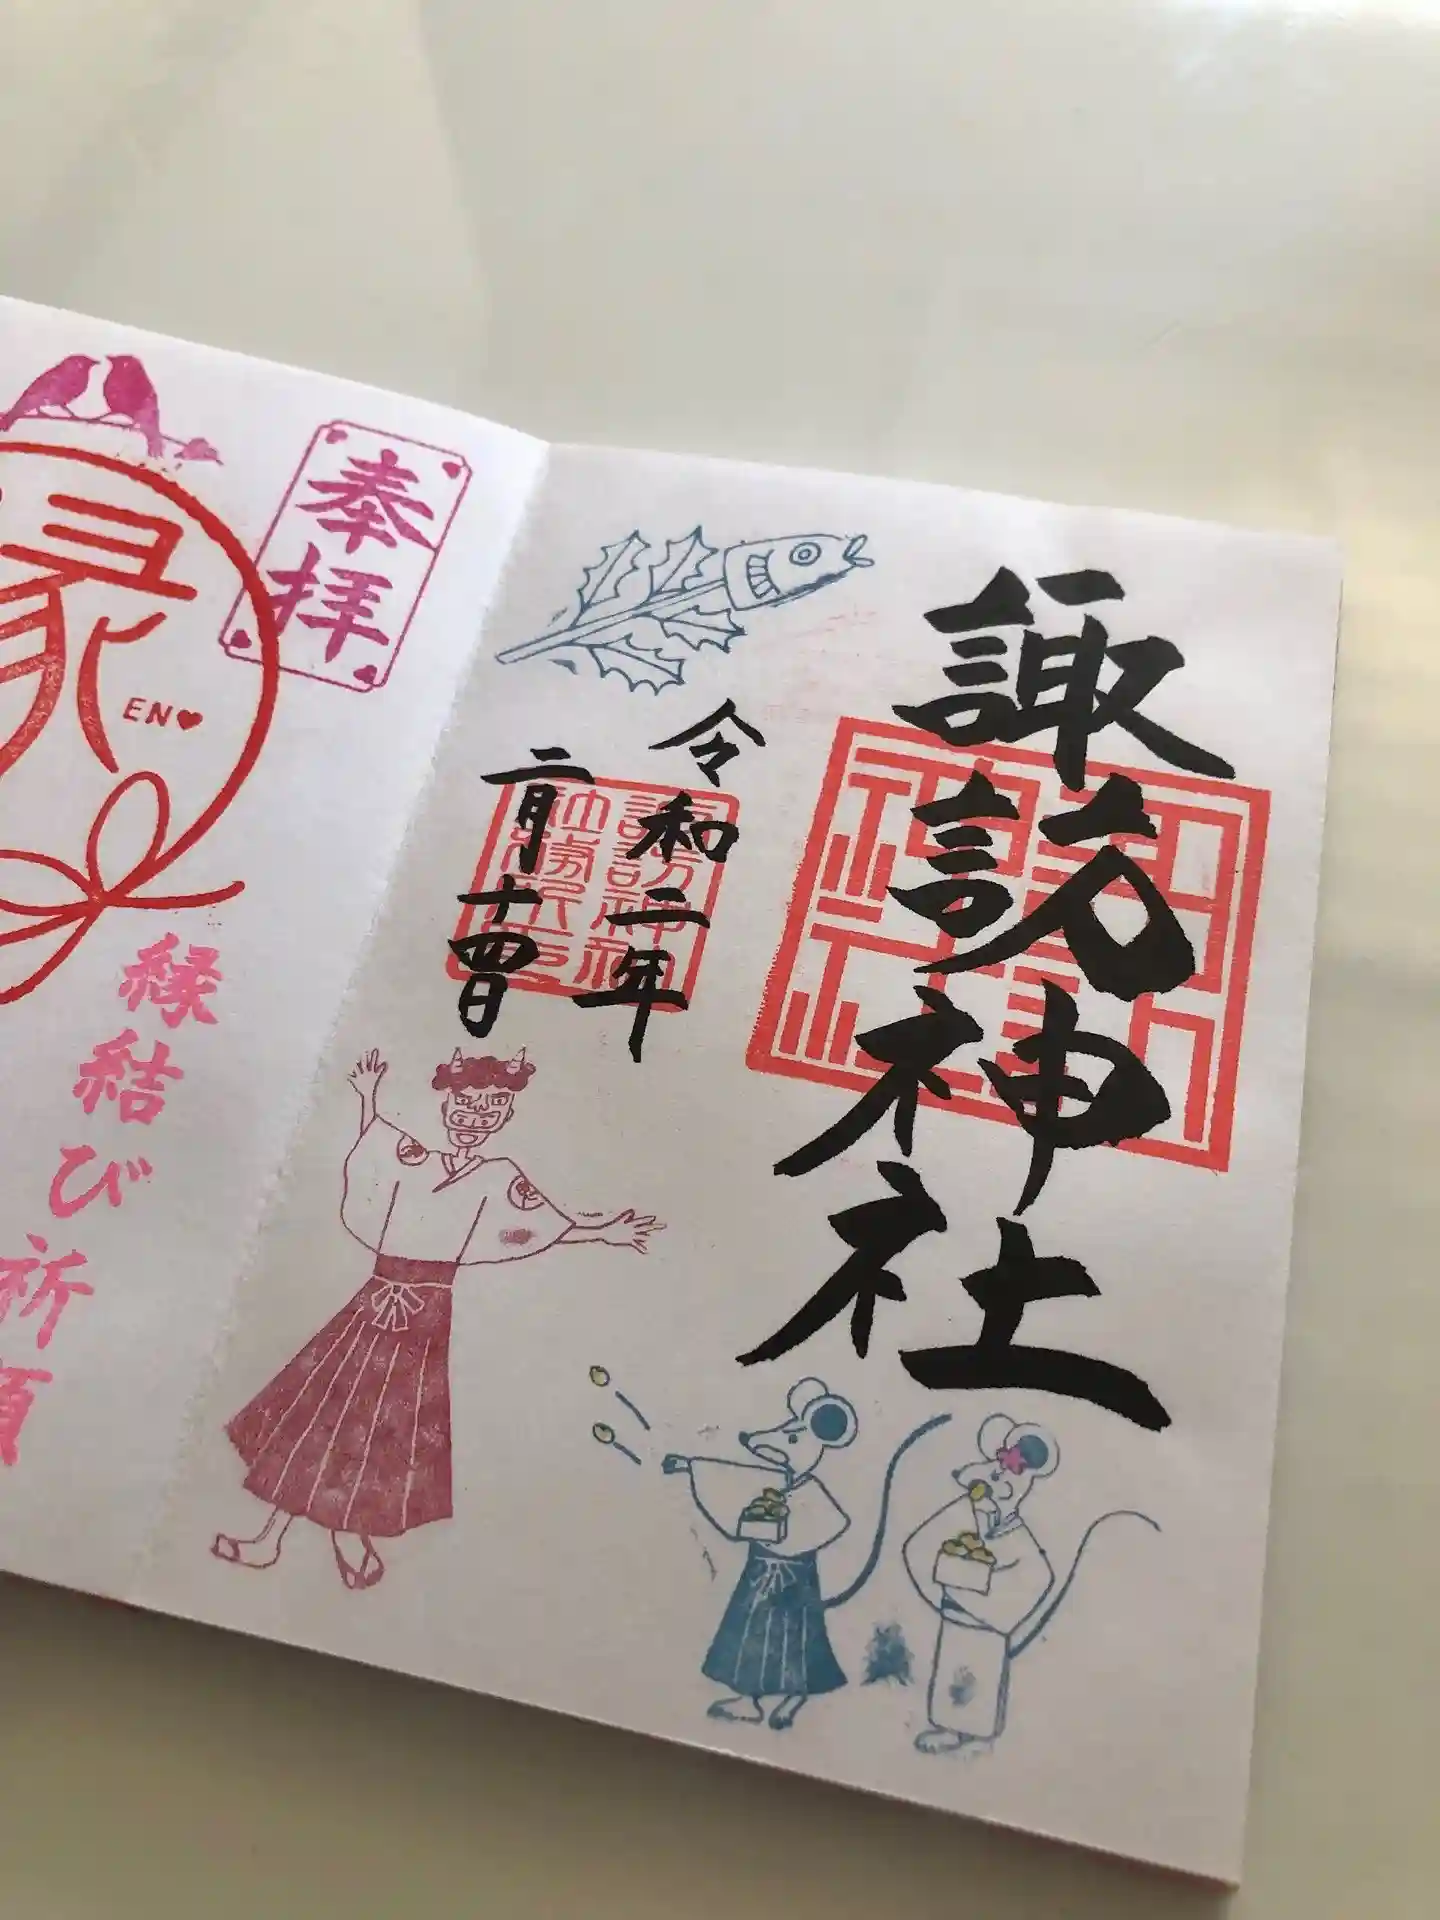 諏訪神社
令和二年
二月十四日
諏訪神社
社務所之印
奉拝
EN♥
縁結び祈願